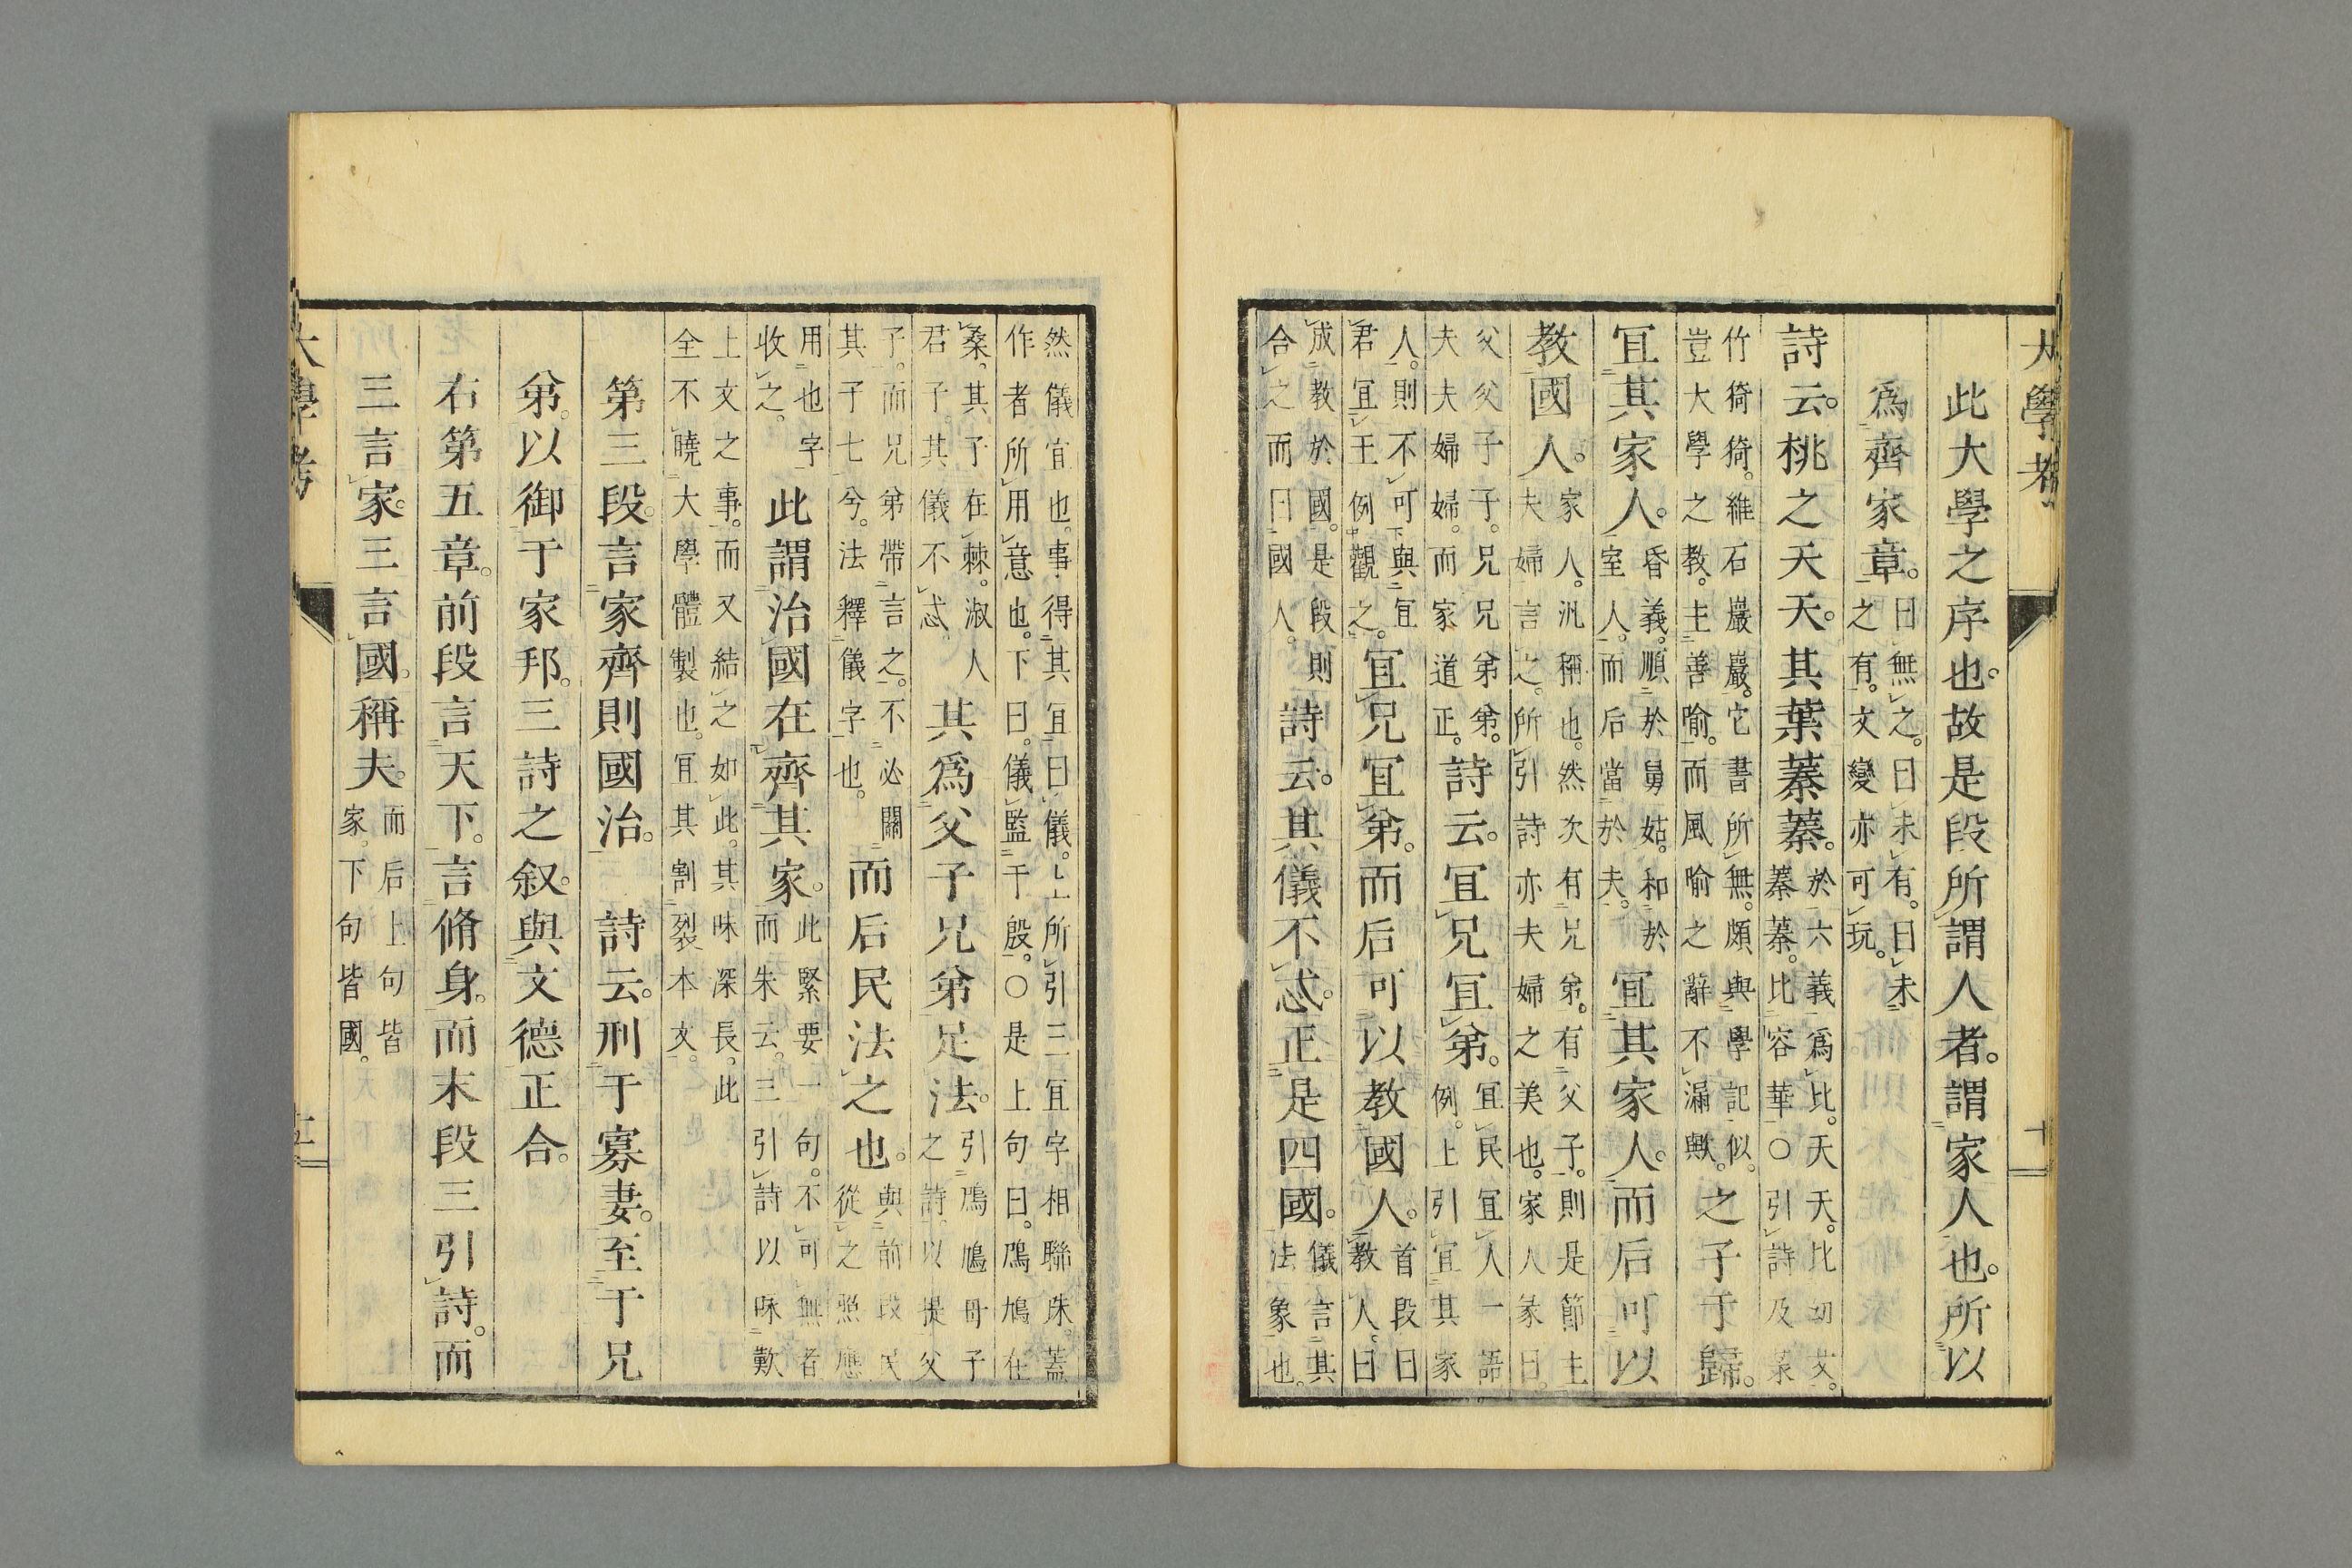 大學考
此大學之序也。故是段所謂人者。謂家人也。所以
爲齊家章。曰無之。曰未有。曰未
之有。文變亦可玩。
詩云。桃之夭夭。其葉蓁蓁。於六義爲比。夭夭。比幼艾。
蓁蓁。比容華○引詩及菉
竹猗猗。維石巖巖。它書所無。頗與學記似。
豈大學之教。主善喻。而風喻之辭不漏歟。之子于歸。
宜其家人。昏義。順於舅姑。和於
室人。而后當於夫。宜其家人。而后可以
教國人。家人。汎稱也。然次有兄弟。有父子。則是節主
夫婦言之。所引詩亦夫婦之美也。家人彖曰。
父父子子。兄兄弟弟。
夫夫婦婦。而家道正。詩云。宜兄宜弟。宜民宜人一語
例。上引宜其家
人。則不可與宜
君宜王例觀之。宜兄宜弟。而后可以教國人。首段曰
教人。曰
成教於國。是段則
合之而曰國人。詩云。其儀不忒。正是四國。儀言其
法象也。
十
然儀宜也。事得其宜曰儀。上所引三宜字相聯珠。蓋
作者所用意也。下曰。儀監于殷。○是上句曰。鳲鳩在
桑。其子在棘。淑人
君子。其儀不忒。其爲父子兄弟足法。引鳲鳩母子
之詩。以提父
子。而兄弟帶言之。不必關
其子七兮。法釋儀字也。而后民法之也。與前段民
從之照應
用也字
收之。此謂治國在齊其家。此緊要一句。不可無者
而朱云。三引詩以咏歎
上文之事。而又結之如此。其味深長。此
全不曉大學體製也。宜其割裂本文。
第三段。言家齊則國治。詩云。刑于寡妻。至于兄
弟。以御于家邦。三詩之叙。與文德正合。
右第五章。前段言天下。言脩身。而末段三引詩。而
三言家。三言國。稱夫。而后上句皆
家。下句皆國。
大學考